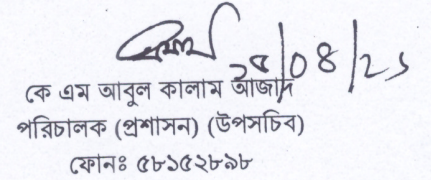 ২৪/০৪/২১
কে এম আবুল কালাম আজাদ
পরিচালক (প্রশাসন) (উপসচিব)
ফোনঃ ৫৮১৫২৮৯৮